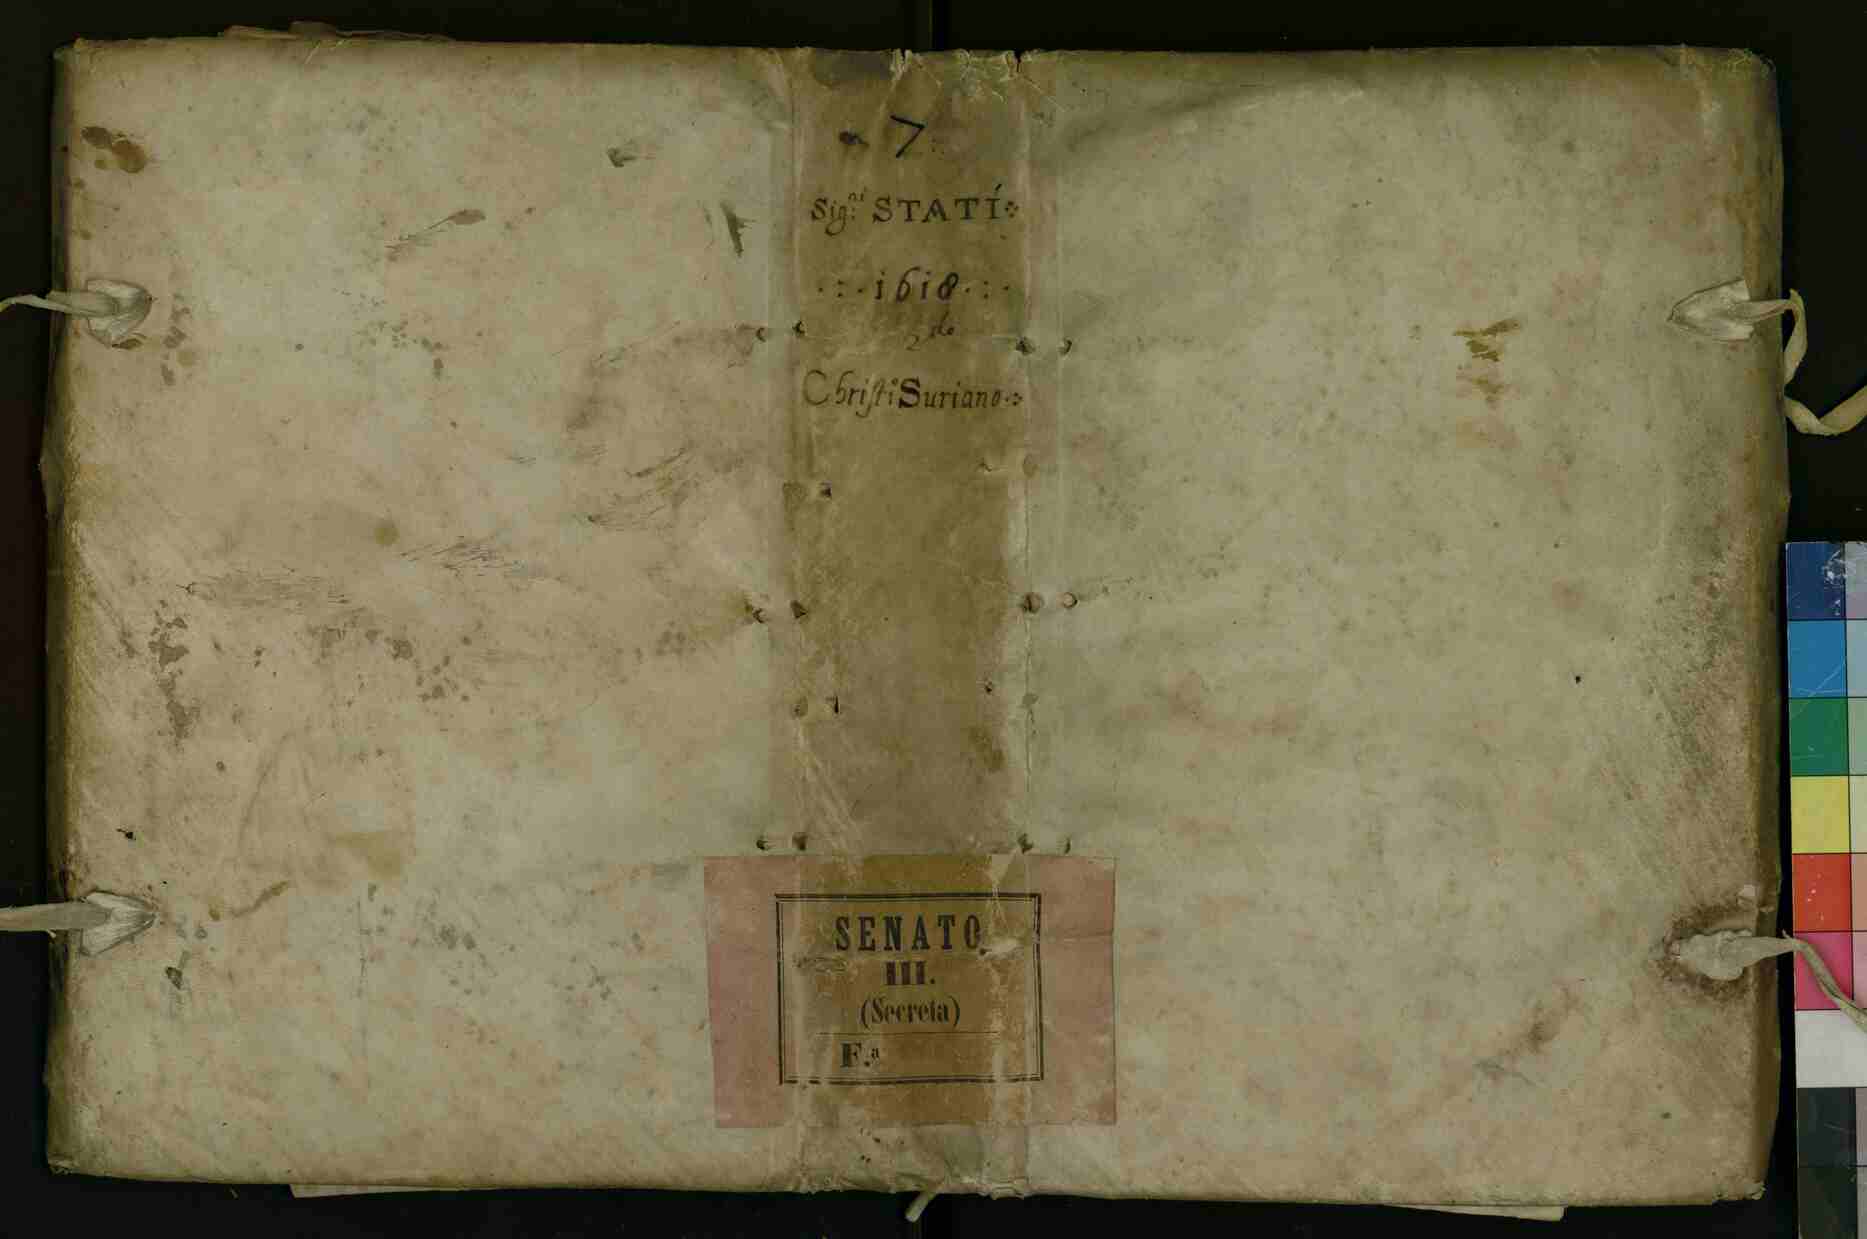 n 7.
Sig.ri STATI
1618
2do
Christo Suriano
SENATO
III.
(Secreta)
F.a